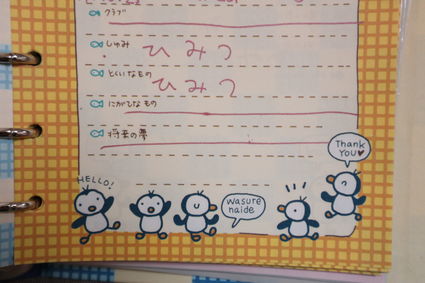 クラブ
しゅみ ひみつ
とくいなもの ひみつ
にがてなもの
将来の夢
HELLO!
Wasure
naide
Thank
You♥